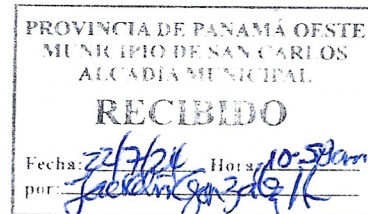 PROVINCIA DE PANAMÁ OESTE
MUNICIPIO DE SAN CARLOS
ALCADÍA MUNICIPAL
RECIBIDO
Fecha: 22/7/24 Hora: 10:58am
por: